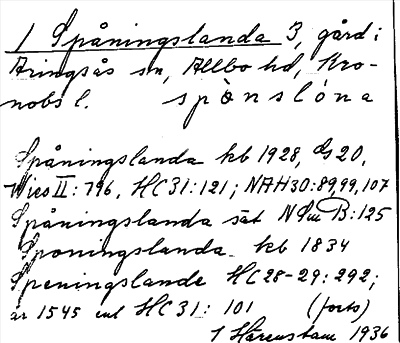 1 Spåningslanda 3, gård i
Aringsås sn, Allbo hd, Kro-
nobs l. spònslóna
Spåningslanda kb 1928, Gs 20,
Wies II: 796, HC 31:121; NAH 30:89,99,107
Spåningslanda sät NSm B:125
Sponingslanda kb 1834
Speningslande HC 28-29: 292;
år 1545 enl HC 31: 101 (forts)
1 Härenstam 1936